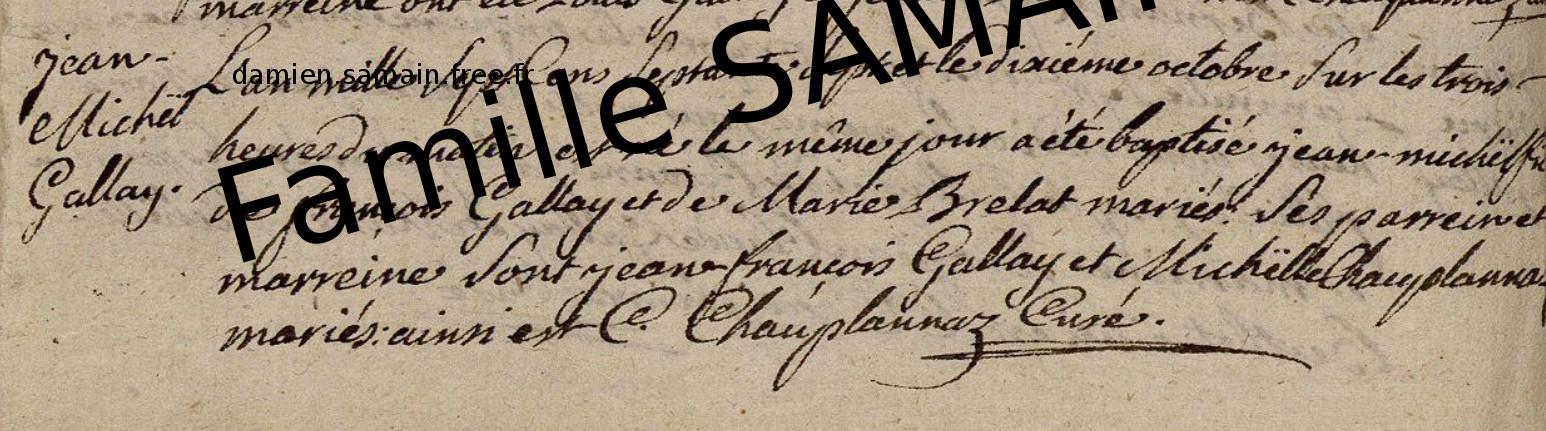 marreine ont été Louis
jean-
Michël
Gallay.
L'an mille sept Cens septante sept et le dixiéme octobre sur les trois
heures du matin est né le même jour a été baptisé jean-michël fils
de françois Gallay et de Marie Brelat mariés: ses parrein et
marreine sont jean-françois Gallay et Michëlle Chauplannaz
mariés: ainsi est C. Chauplannaz Curé.
damien.samain.free.fr
Famille SAMAIN